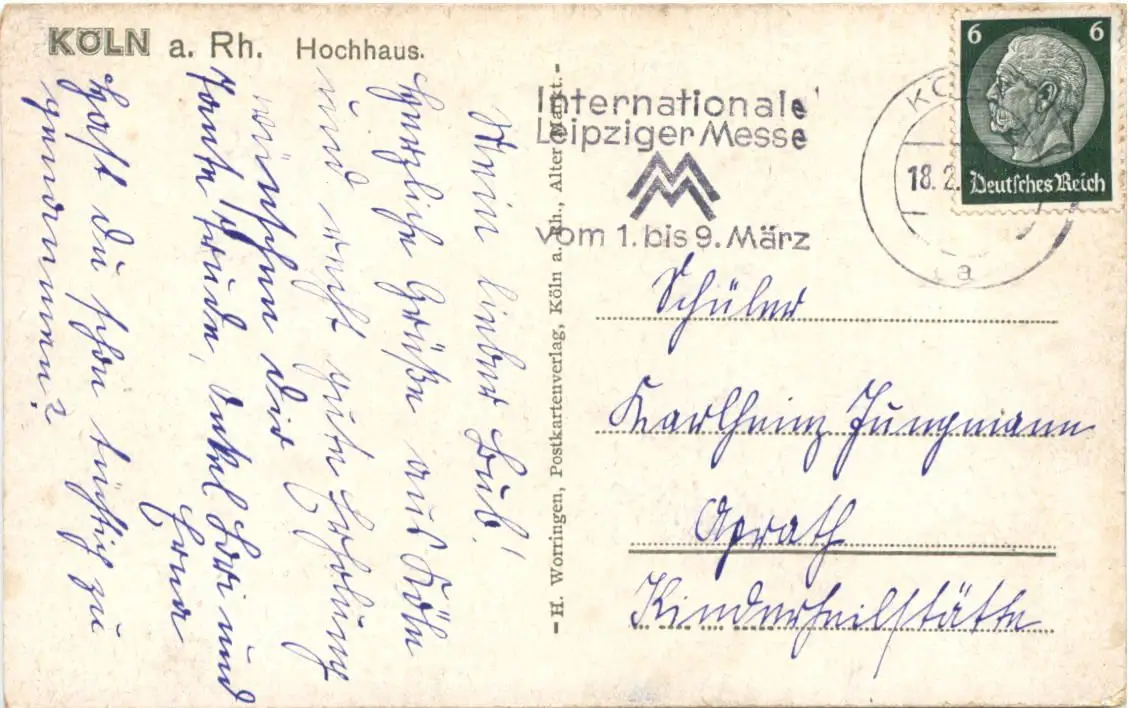 KÖLN a. Rh. Hochhaus.
Mein lieber Bub!
Herzliche Grüße aus Köln
und recht gute Erholung
wünschen Dir
Tante Trude, Onkel und
Erna
Hast Du schon tüchtig zu
genommen?
- H. Worringen, Postkartenverlag, Köln a. Rh., Alter Markt. -
Internationale
Leipziger Messe
MM
vom 1. bis 9. März
18. 2.
a
6 6
Deutsches Reich
Schüler
Karlheinz Jungmann
Aprath
Kinderheilstätte